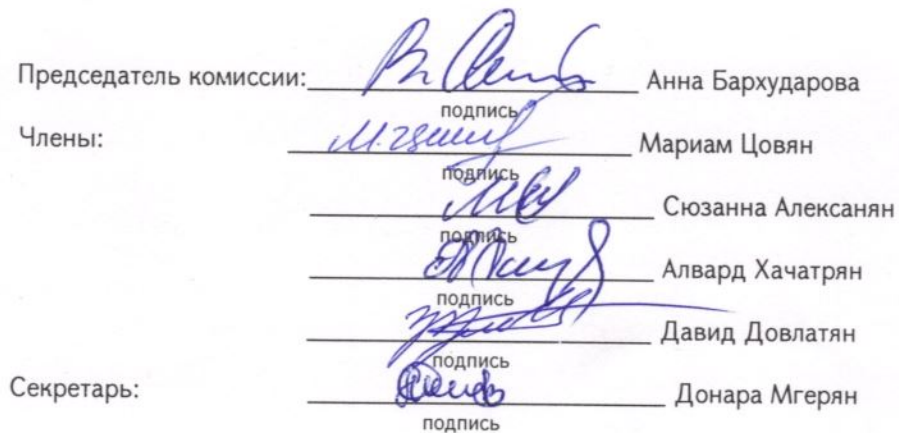 Председатель комиссии: Анна Бархударова
подпись
Члены: Мариам Цовян
подпись
Сюзанна Алексанян
подпись
Алвард Хачатрян
подпись
Давид Довлатян
подпись
Секретарь: Донара Мгерян
подпись